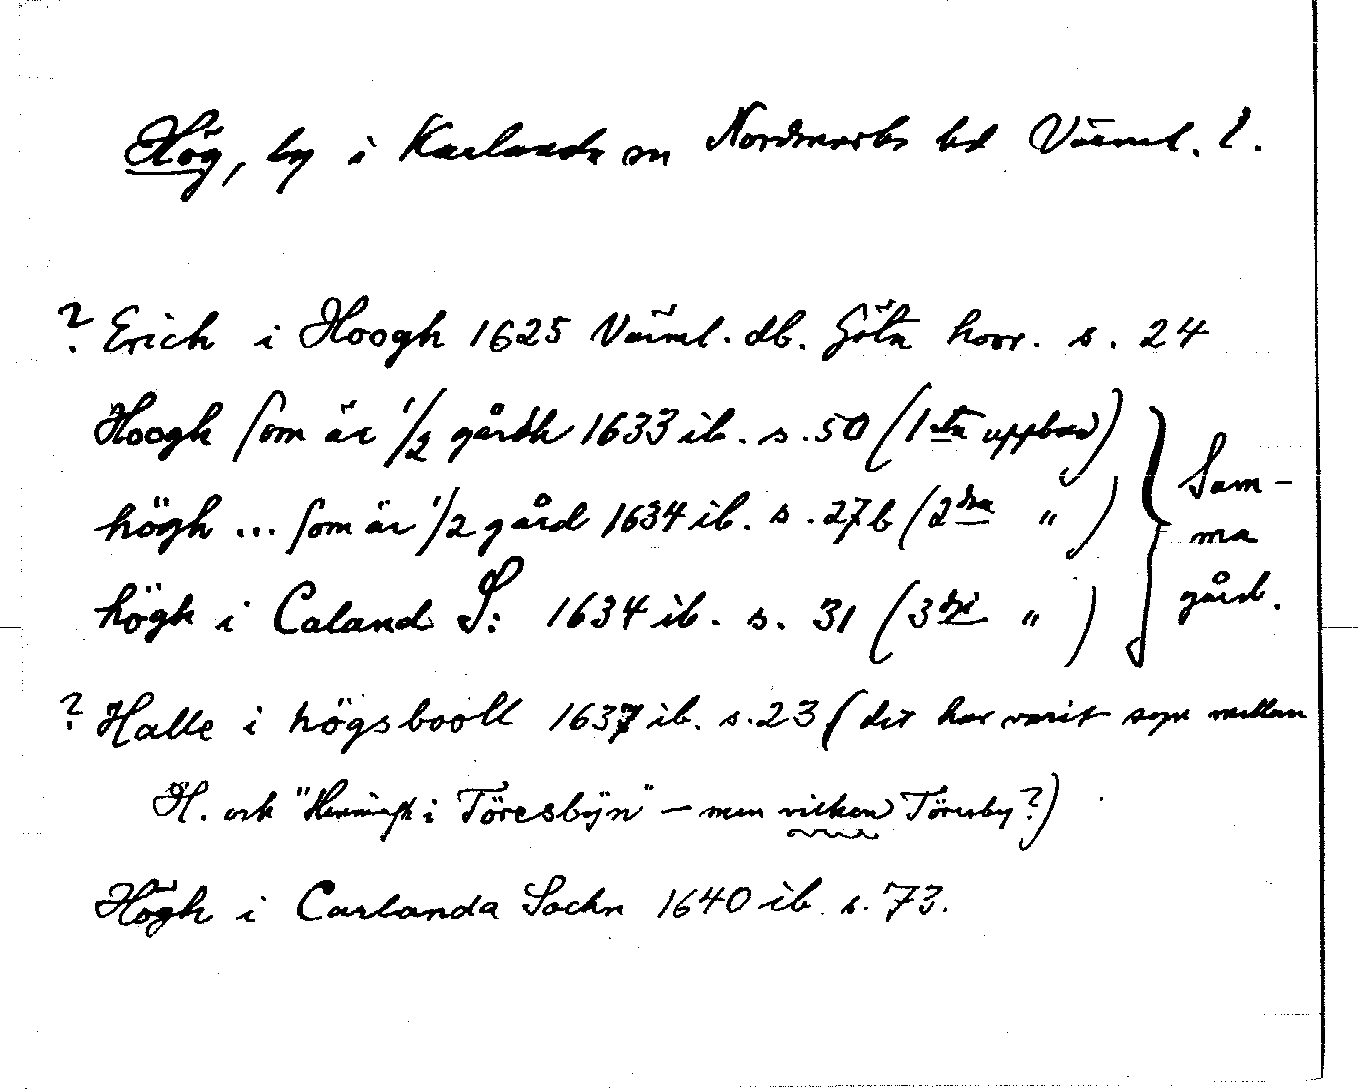 Hög, by i Karlanda sn Nordmarks hd Värml. l.
? Erich i Hoogh 1625 Värml. db. Göta hovr. s. 24
Hoogh som är 1/2 gårdh 1633 ib. s. 50 (1sta uppbud)
högh ... som är 1/2 gård 1634 ib. s. 27b (2dra " )
högh i Caland S: 1634 ib. s. 31 (3dje " )
Sam-
ma
gård.
? Halle i högsbooll 1637 ib. s. 23 (det har varit syn mellan
H. och " i Töresbÿn" – men vilken Töresby?)
Högh i Carlanda Sochn 1640 ib s. 73.